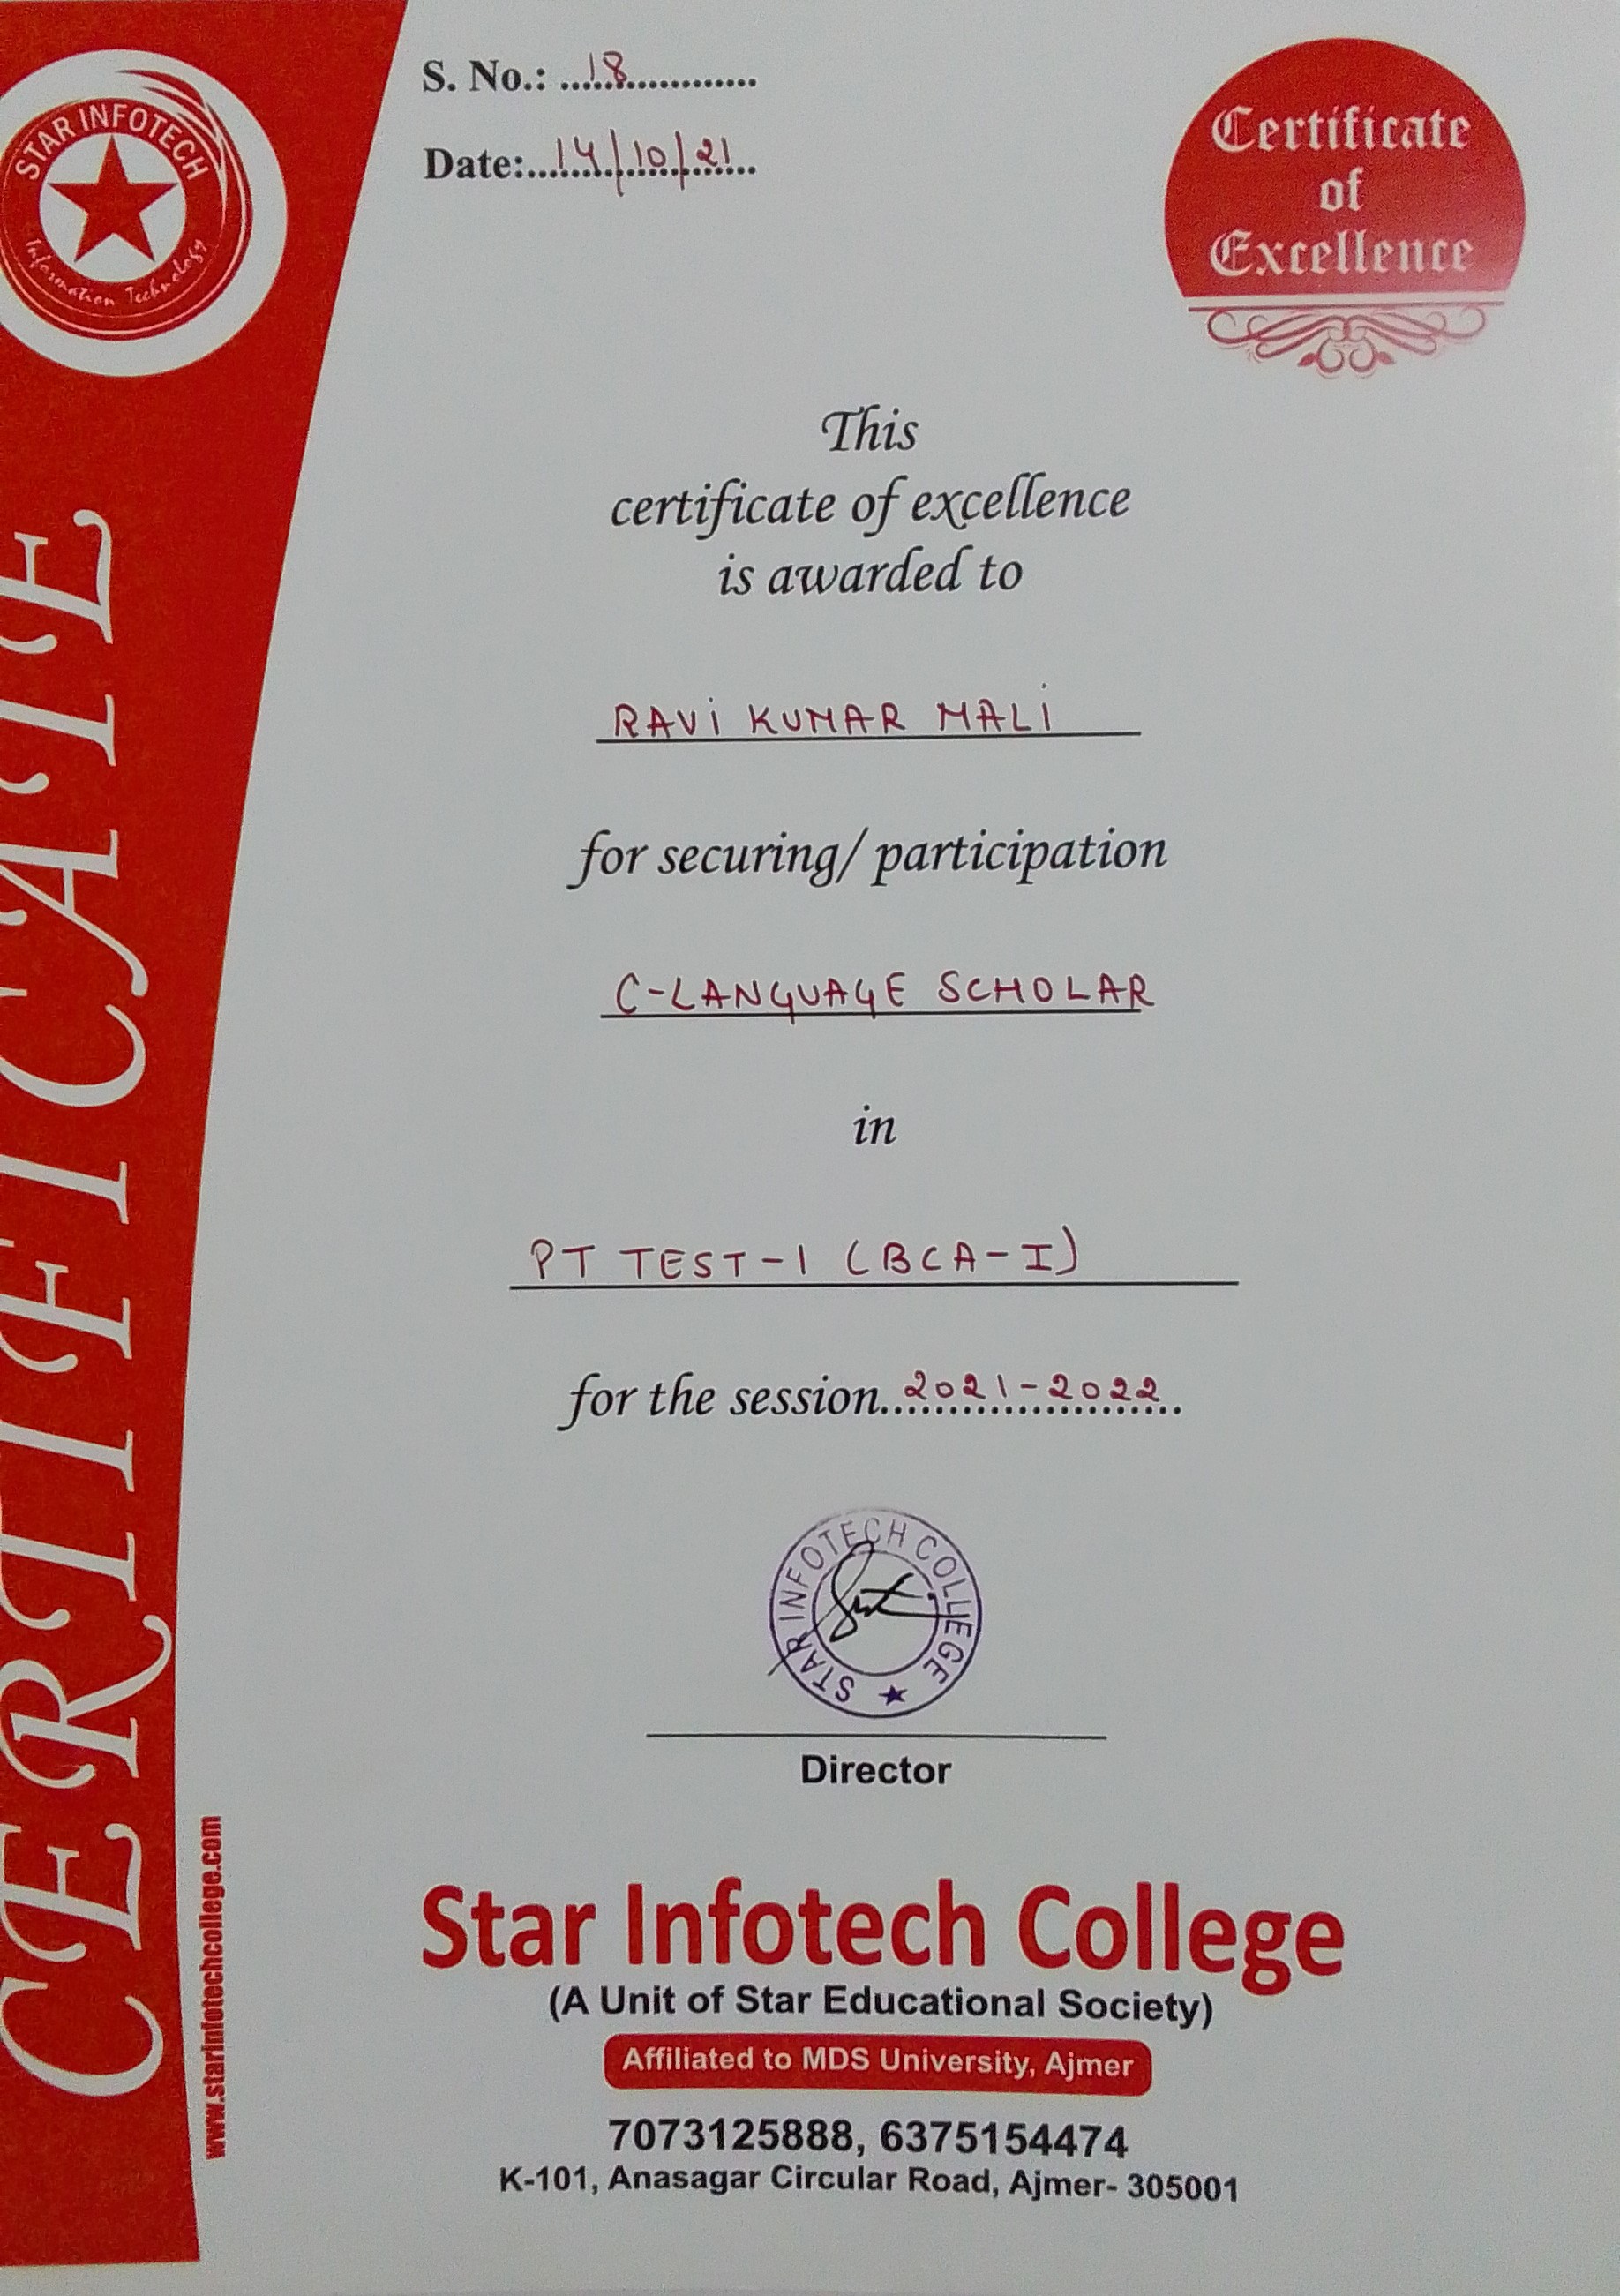 STAR INFOTECH
Information Technology
S. No.: ....18..............
Date:.....14/10/21..
Certificate
of
Excellence
This
certificate of excellence
is awarded to
RAVi KUMAR MALI
for securing/ participation
C-LANGUAGE SCHOLAR
in
PT TEST-1 (BCA-I)
for the session..2021-2022..
STAR INFOTECH COLLEGE
Director
CERTIFICATE
www.starinfotechcollege.com
Star Infotech College
(A Unit of Star Educational Society)
Affiliated to MDS University, Ajmer
7073125888, 6375154474
K-101, Anasagar Circular Road, Ajmer- 305001